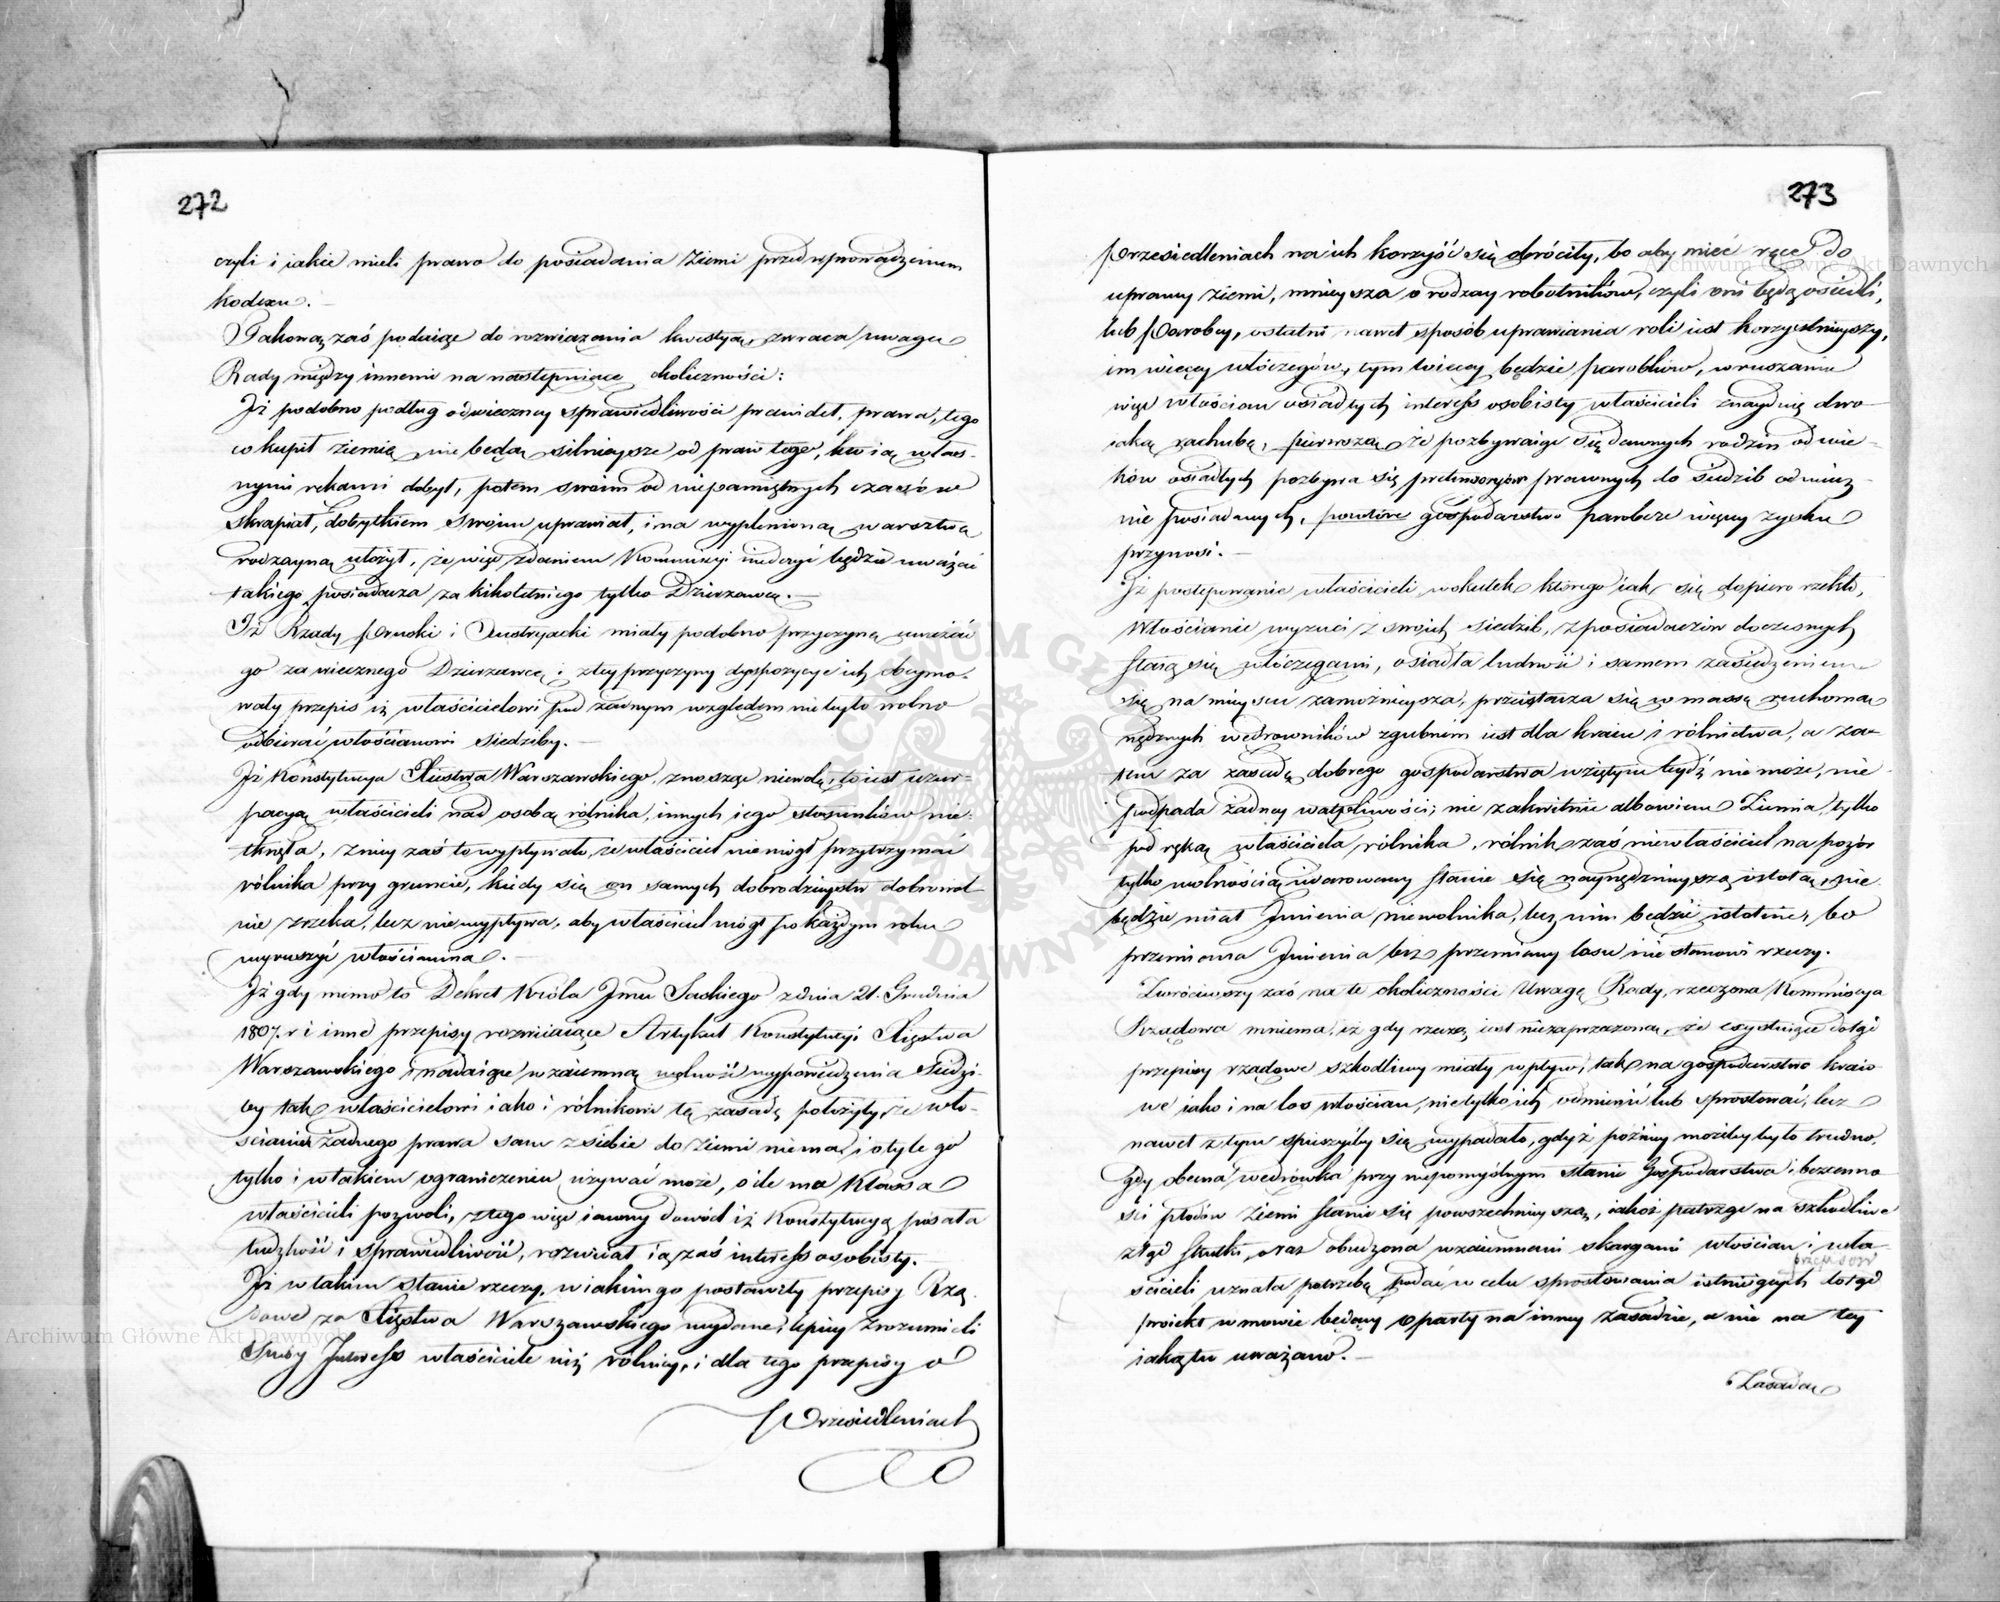 272
czyli i iakie mieli prawo do posiadania Ziemi przed wprowadzeniem
kodexu. —
Takową zaś podaiąc do rozwiązania kwestyą, zwraca uwagę
Rady między innemi na następuiące okoliczności:
Iż podobno podług odwieczney sprawiedliwości prawideł, prawa, tego
co kupił ziemię nie będą silnieysze od praw tego, kto ią włas-
nymi rękami dobył, potem swoim od niepamiętnych czasów
skrapiał, dobytkiem swoim uprawiał, i na wyplenioną warsztwą
rodzayną ułożył, że więc zdaniem Kommissyi niedosyć będzie uważać
takiego posiadacza za kilkoletniego tylko Dzierzawcę. —
Iż Rządy Pruski i Austryacki miały podobno przyczynę uważać
go za wiecznego Dzierzawcę i z tey przyczyny dyspozycye ich obeymo-
wały przepis iż właścicielowi pod żadnym względem nie było wolno
odbierać włościanowi siedziby. —
Iż Konstytucya Xięstwa Warszawskiego, znosząc niewolę, to iest uzur-
pacyą właścicieli nad osobą rólnika, innych iego stosunków nie-
tknęła, z niey zaś to wypływało, że właściciel nie mógł przytrzymać
rólnika przy gruncie, kiedy się on samych dobrodzieystw dobrowol-
nie zrzeka, lecz nie wypływa, aby właściciel mógł po każdym roku
wyruszyć włościanina. —
Iż gdy mimo to Dekret Króla Jmci Saskiego z dnia 21. Grudnia
1807. r i inne przepisy rozwiiaiące Artykuł Konstytucyi Xięstwa
Warszawskiego i nadaiące wzaiemną wolność wypowiedzenia Siedzi-
by tak właścicielowi iako i rólnikowi tę zasadę położyły, że wło-
ścianin żadnego prawa sam z siebie do Ziemi niema, i o tyle go
tylko i w takiem ograniczeniu używać może, o ile ma Klassa
właścicieli pozwoli, z tego więc iawny dowód iż Konstytucyą pisała
ludzkość i sprawiedliwość, rozwiiał ią zaś interess osobisty. —
Iż w takim stanie rzeczy, w iakim go postawiły przepisy Rzą-
dowe za Xięstwa Warszawskiego wydane, lepiey zrozumieli
swóy Interess właściciele niż rólnicy, i dla tego przepisy o
Przesiedleniach
273
Przesiedleniach na ich korzyść się obróciły, bo aby mieć ręce do
uprawy ziemi, mnieysza o rodzay robotników, czyli oni będą osiedli,
lub Parobcy, ostatni nawet sposób uprawiania roli iest korzystnieyszy,
im więcey włóczęgów, tym więcey będzie parobków, w ruszaniu
więc włościan osiadłych interess osobisty właścicieli znayduie dwo-
iaką rachubę, pierwszą że pozbywaiąc się dawnych rodzin od wie-
ków osiadłych pozbywa się pretensorów prawnych do siedzib odwiecz-
nie posiadanych, powtóre gospodarstwo parobcze więcey zysku
przynosi. —
Iż postępowanie właścicieli, w skutek którego iak się dopiero rzekło,
Włościanie wyzuci z swoich siedzib, z posiadaczów doczesnych
staią się włóczęgami, osiadła ludność i samem zasiedzeniem
się na mieyscu zamożnieysza, przeistacza się w massę ruchomą
nędznych wędrowników zgubnem iest dla kraiu i rólnictwa, a za-
tem za zasadę dobrego gospodarstwa wziętym bydź nie może, nie
podpada żadney wątpliwości; nie zakwitnie albowiem Ziemia, tylko
pod ręką właściciela rólnika, rólnik zaś niewłaściciel na pozór
tylko wolnością udarowany stanie się naynędznieyszą istotą, nie
będzie miał Imienia niewolnika, lecz nim będzie istotnie, bo
przemiana Imienia bez przemiany losu nie stanowi rzeczy.
Zwróciwszy zaś na te okoliczności Uwagę Rady, rzeczona Kommissya
Rządowa mniema, iż gdy rzeczą iest niezaprzeczoną, że exystuiące dotąd
przepisy rządowe szkodliwy miały wpływ, tak na gospodarstwo kraio-
we iako i na los włościan, nie tylko ich odmienić lub sprostować, lecz
nawet z tym spieszyćby się wypadało, gdyż późniey możeby było trudno,
gdy obecna wędrówka przy niepomyślnym stanie Gospodarstwa i bezcenno-
ści płodów Ziemi stanie się powszechnieyszą, iakoż patrząc na szkodliwe
ztąd skutki, oraz obudzona wzaiemnemi skargami włościan i wła-
ścicieli uznała potrzebę podać w celu sprostowania istnieiących dotąd
proiekt w mowie będący oparty na inney zasadzie, a nie na tey
iaką tu uważano. —
Zasada